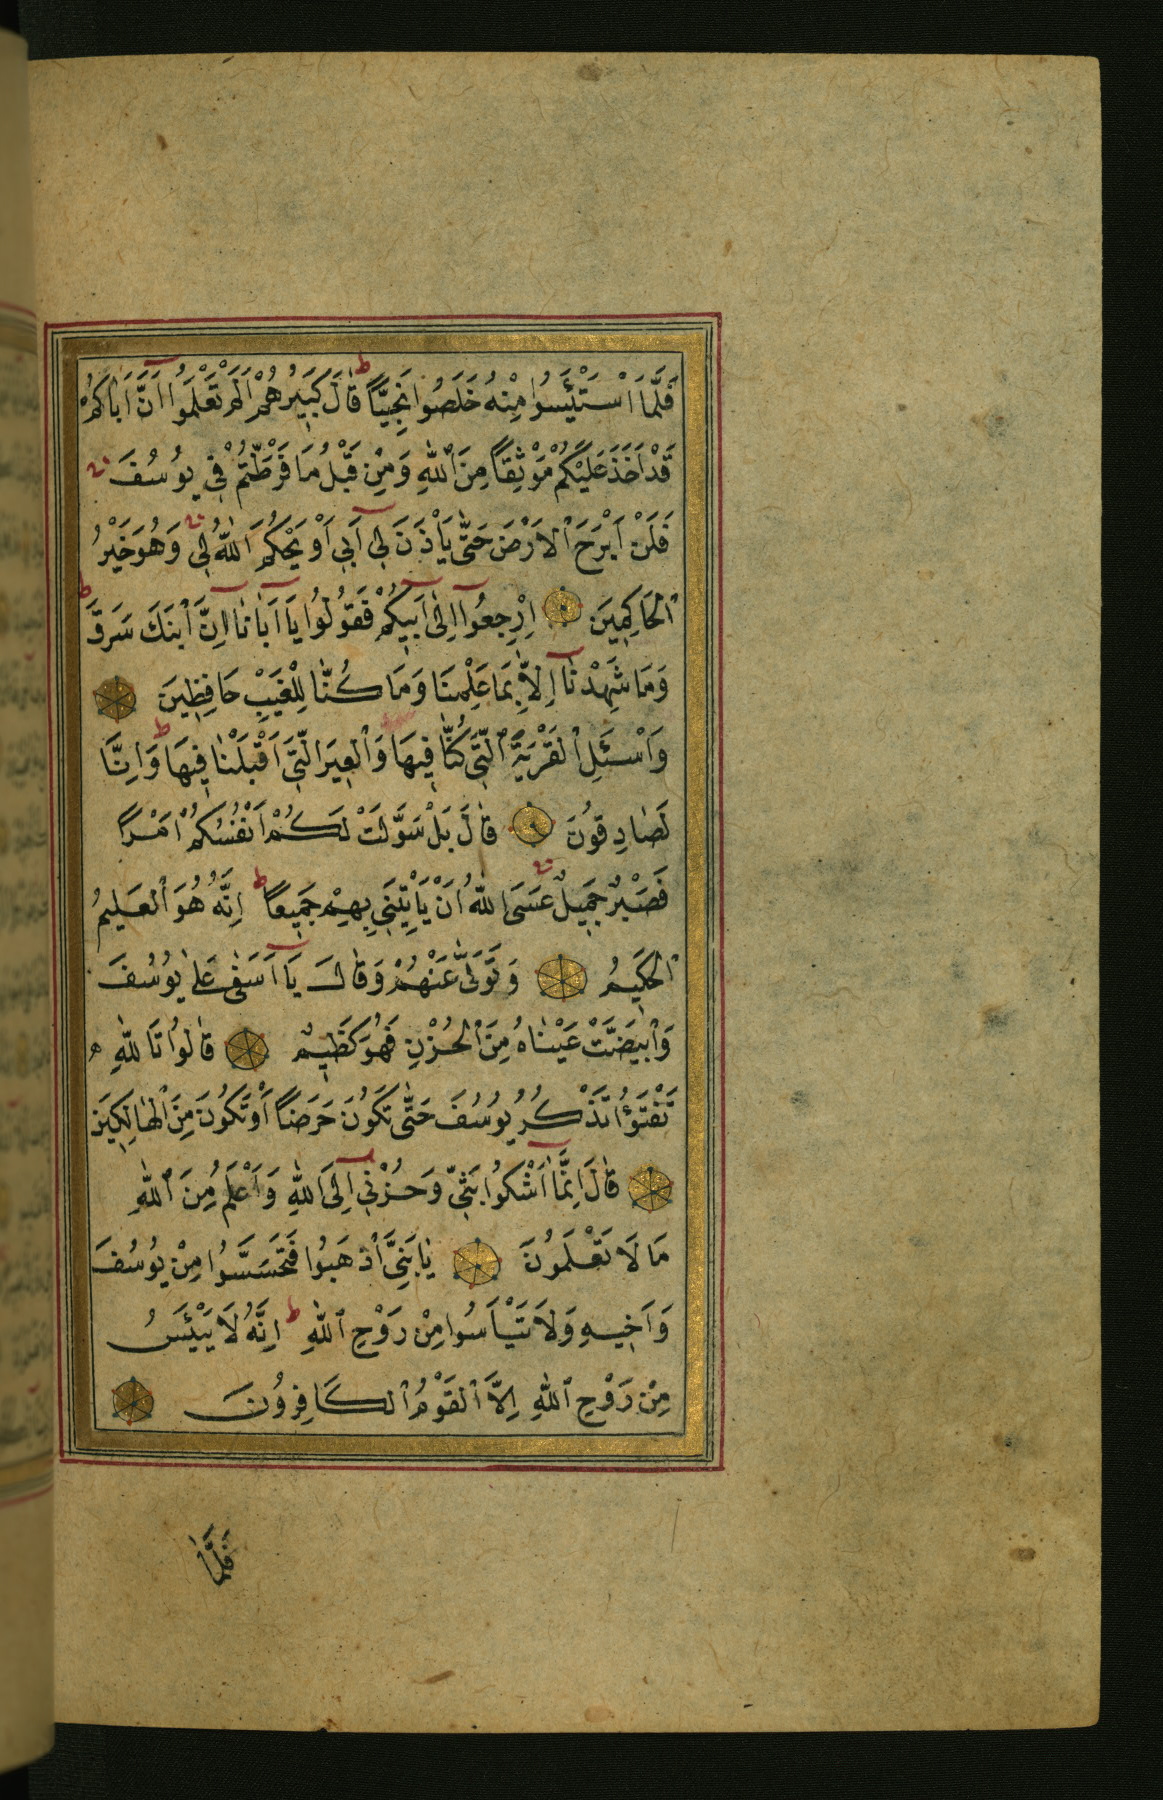 فَلَمَّا اَسْتَيْئَسُوا مِنْهُ خَلَصُوا نَجِيّاً قَالَ كَبِيرُهُمْ اَلَمْ تَعْلَمُوا اَنَّ اَبَاكُمْ
قَدْ اَخَذَ عَلَيْكُمْ مَوْثِقاً مِنَ اللّٰهِ وَمِنْ قَبْلُ مَا فَرَّطْتُمْ فِي يُوسُفَ
فَلَنْ اَبْرَحَ الْاَرْضَ حَتّٰى يَأْذَنَ لِي اَبِي اَوْ يَحْكُمَ اللّٰهُ لِي وَهُوَ خَيْرُ
الْحَاكِمِينَ اِرْجِعُوا اِلٰى اَبِيكُمْ فَقُولُوا يَا اَبَانَا اِنَّ ابْنَكَ سَرَقَ
وَمَا شَهِدْنَا اِلَّا بِمَا عَلِمْنَا وَمَا كُنَّا لِلْغَيْبِ حَافِظِينَ
وَاسْئَلِ الْقَرْيَةَ الَّتِي كُنَّا فِيهَا وَالْعِيرَ الَّتِي اَقْبَلْنَا فِيهَا وَاِنَّا
لَصَادِقُونَ قَالَ بَلْ سَوَّلَتْ لَكُمْ اَنْفُسُكُمْ اَمْراً
فَصَبْرٌ جَمِيلٌ عَسَى اللّٰهُ اَنْ يَأْتِيَنِي بِهِمْ جَمِيعاً اِنَّهُ هُوَ الْعَلِيمُ
الْحَكِيمُ وَتَوَلّٰى عَنْهُمْ وَقَالَ يَا اَسَفٰى عَلٰى يُوسُفَ
وَابْيَضَّتْ عَيْنَاهُ مِنَ الْحُزْنِ فَهُوَ كَظِيمٌ قَالُوا تَاللّٰهِ
تَفْتَؤُا تَذْكُرُ يُوسُفَ حَتّٰى تَكُونَ حَرَضاً اَوْ تَكُونَ مِنَ الْهَالِكِينَ
قَالَ اِنَّمَا اَشْكُوا بَثِّي وَحُزْنِي اِلَى اللّٰهِ وَاَعْلَمُ مِنَ اللّٰهِ
مَا لَا تَعْلَمُونَ يَا بَنِيَّ اذْهَبُوا فَتَحَسَّسُوا مِنْ يُوسُفَ
وَاَخِيهِ وَلَا تَيْاَسُوا مِنْ رَوْحِ اللّٰهِ اِنَّهُ لَا يَيْئَسُ
مِنْ رَوْحِ اللّٰهِ اِلَّا الْقَوْمُ الْكَافِرُونَ
فَلَمَّا